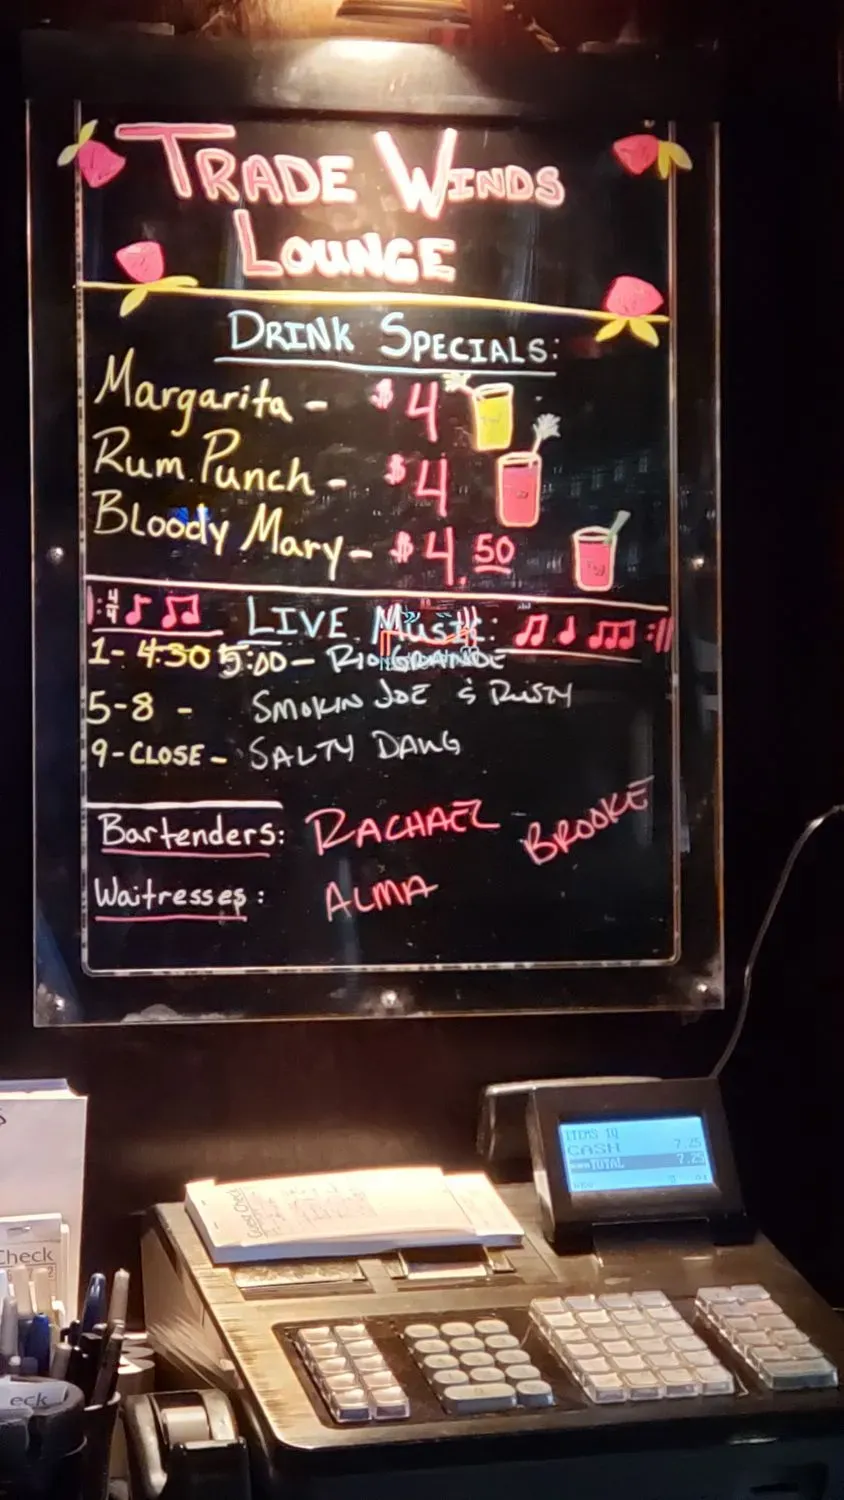 TRADE WINDS
LOUNGE
DRINK SPECIALS:
Margarita - $4
Rum Punch - $4
Bloody Mary - $4.50
4/4 LIVE Music:
1- 4:30 5:00 - RIO GRANDE
5-8 - SMOKIN JOE & RUSTY
9-CLOSE - SALTY DAWG
Bartenders: RACHAEL BROOKE
Waitresses: ALMA
ITEMS 1Q
CASH 7.25
TOTAL 7.25
Guest Check
Check
eck